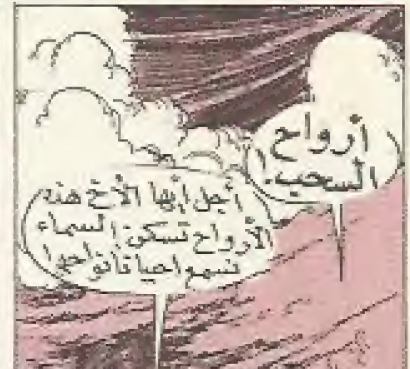 أرواح
السحب!
أجل أيها الأخ هذه
الأرواح تسكن السماء
نسمع احيانا نواحها